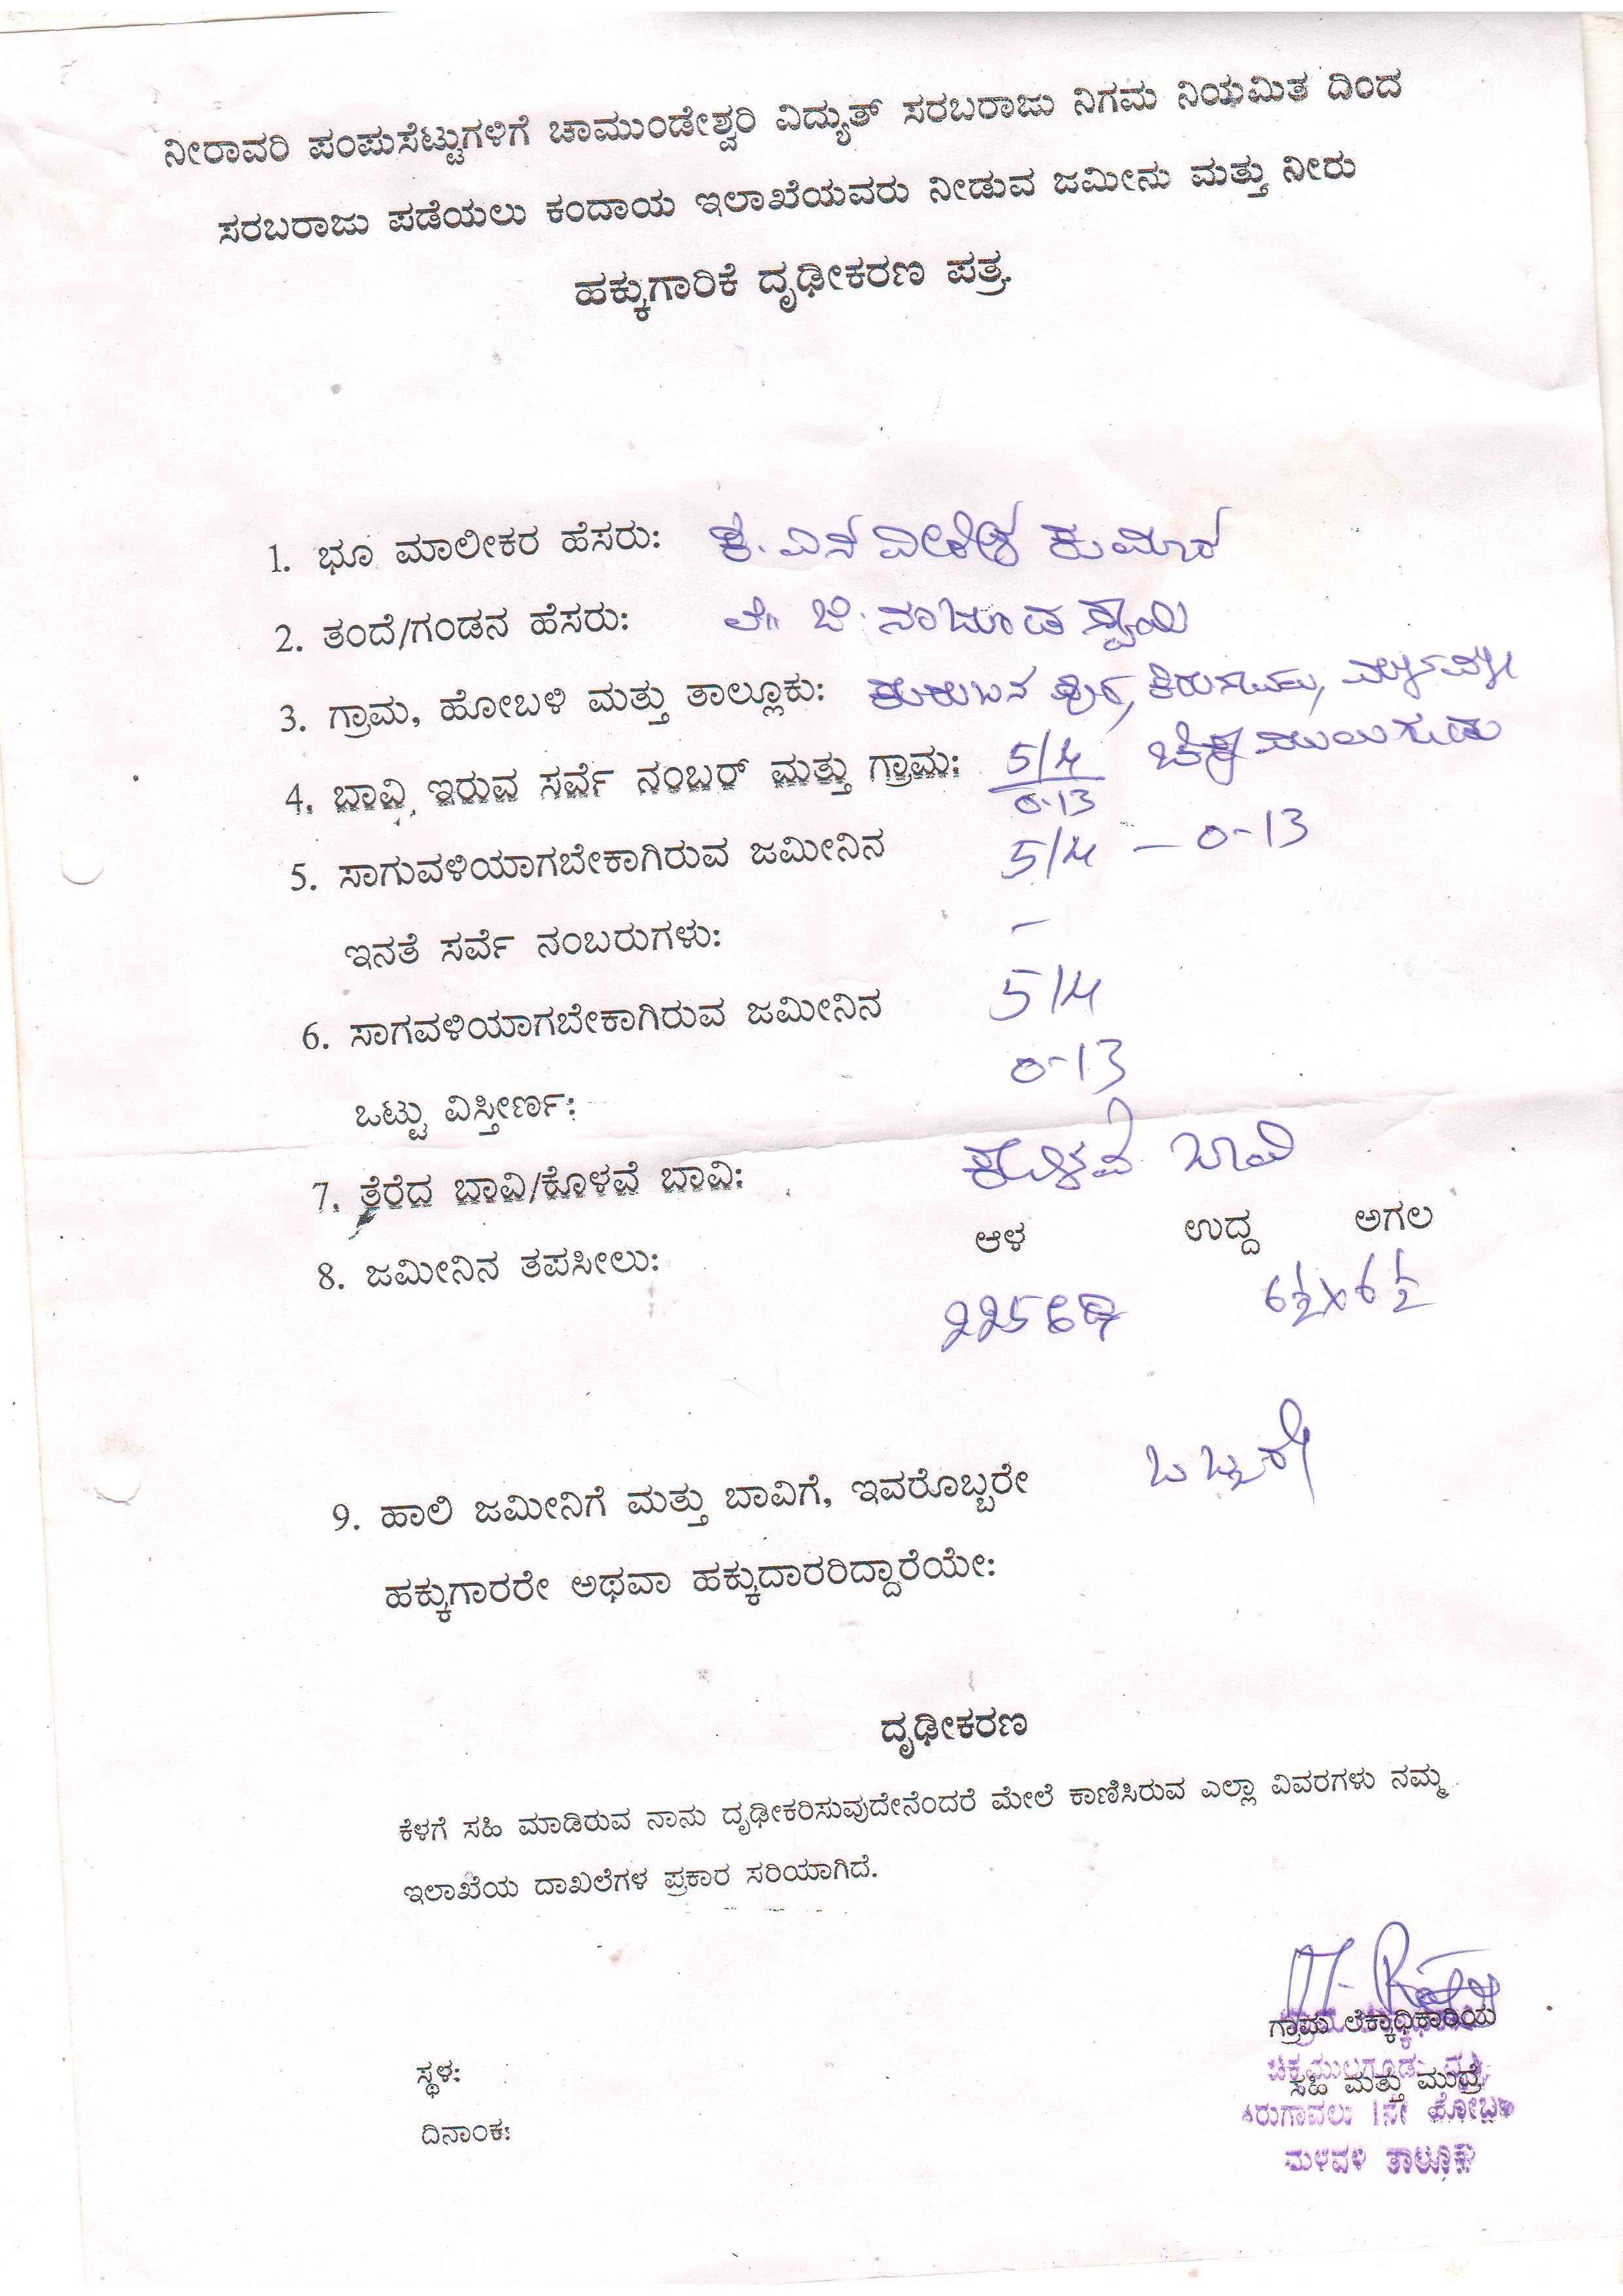 ನೀರಾವರಿ ಪಂಪುಸೆಟ್ಟುಗಳಿಗೆ ಚಾಮುಂಡೇಶ್ವರಿ ವಿದ್ಯುತ್ ಸರಬರಾಜು ನಿಗಮ ನಿಯಮಿತ ದಿಂದ
ಸರಬರಾಜು ಪಡೆಯಲು ಕಂದಾಯ ಇಲಾಖೆಯವರು ನೀಡುವ ಜಮೀನು ಮತ್ತು ನೀರು
ಹಕ್ಕುಗಾರಿಕೆ ದೃಢೀಕರಣ ಪತ್ರ
1. ಭೂ ಮಾಲೀಕರ ಹೆಸರು: ಕೆ. ಎನ್ ಕುಮಾರ
2. ತಂದೆ/ಗಂಡನ ಹೆಸರು: ಲೇ॥ ಸ್ವಾಮಿ
3. ಗ್ರಾಮ, ಹೋಬಳಿ ಮತ್ತು ತಾಲ್ಲೂಕು: ಕುರುಬನ ಪುರ, ಕಿರುಗಾವಲು, ಮಳವಳ್ಳಿ
4. ಬಾವಿ ಇರುವ ಸರ್ವೆ ನಂಬರ್ ಮತ್ತು ಗ್ರಾಮ: 5/4 ಚಿಕ್ಕಮುಲಗೂಡು
0-13
5. ಸಾಗುವಳಿಯಾಗಬೇಕಾಗಿರುವ ಜಮೀನಿನ 5/4 – 0-13
ಇನತೆ ಸರ್ವೆ ನಂಬರುಗಳು: –
6. ಸಾಗವಳಿಯಾಗಬೇಕಾಗಿರುವ ಜಮೀನಿನ 5/4
ಒಟ್ಟು ವಿಸ್ತೀರ್ಣ: 0-13
7. ತೆರೆದ ಬಾವಿ/ಕೊಳವೆ ಬಾವಿ: ಕೊಳವೆ ಬಾವಿ
8. ಜಮೀನಿನ ತಪಸೀಲು: ಆಳ ಉದ್ದ ಅಗಲ
225 ಅಡಿ 6½x6½
9. ಹಾಲಿ ಜಮೀನಿಗೆ ಮತ್ತು ಬಾವಿಗೆ, ಇವರೊಬ್ಬರೇ ಒಬ್ಬರೇ
ಹಕ್ಕುಗಾರರೇ ಅಥವಾ ಹಕ್ಕುದಾರರಿದ್ದಾರೆಯೇ:
ದೃಢೀಕರಣ
ಕೆಳಗೆ ಸಹಿ ಮಾಡಿರುವ ನಾನು ದೃಢೀಕರಿಸುವುದೇನೆಂದರೆ ಮೇಲೆ ಕಾಣಿಸಿರುವ ಎಲ್ಲಾ ವಿವರಗಳು ನಮ್ಮ
ಇಲಾಖೆಯ ದಾಖಲೆಗಳ ಪ್ರಕಾರ ಸರಿಯಾಗಿದೆ.
ಗ್ರಾಮ ಲೆಕ್ಕಾಧಿಕಾರಿಯ
ಚಿಕ್ಕಮುಲಗೂಡು ವೃತ್ತ
ಸ್ಥಳ: ಸಹಿ ಮತ್ತು ಮುದ್ರೆ
ಕಿರುಗಾವಲು 1ನೇ ಹೋಬಳಿ
ದಿನಾಂಕ:
ಮಳವಳ್ಳಿ ತಾಲೂಕು